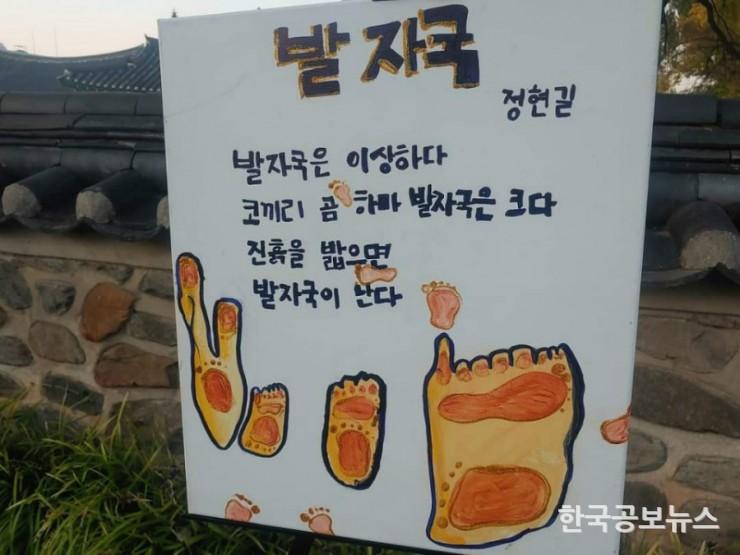 발자국
정현길
발자국은 이상하다
코끼리 곰 하마 발자국은 크다
진흙을 밟으면
발자국이 난다
한국공보뉴스